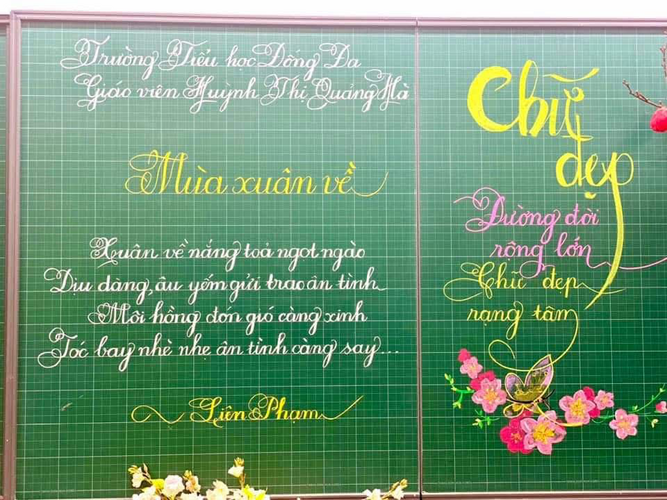 Trường Tiểu học Đống Đa
Giáo viên Huỳnh Thị Quang Hà
Mùa xuân về
Xuân về nắng toả ngọt ngào
Dịu dàng, âu yếm gửi trao ân tình
Môi hồng đón gió càng xinh
Tóc bay nhè nhẹ ân tình càng say...
Liên Phạm
Chữ
đẹp
Đường đời
rộng lớn
Chữ đẹp
rạng tâm